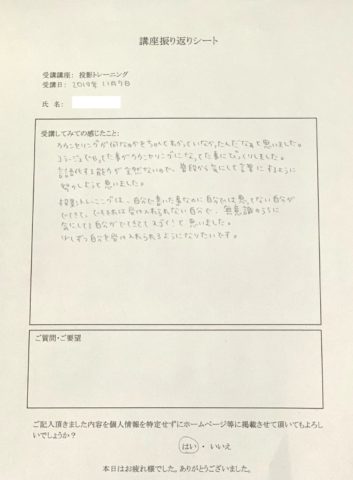 講座振り返りシート
受講講座： 投影トレーニング
受講日： 2019年 11月9日
氏 名：
受講してみての感じたこと：
カウンセリングが何なのかをちゃんとわかっていなかったんだなぁと思いました。
コラージュでやった事がカウンセリングになってた事にびっくりしました。
言語化する能力が全然ないので、普段から気にして言葉にするように
努力しようと思いました。
投影トレーニングは、自分で書いた事なのに自分では思ってない自分が
でてきて、でもそれは受け入れられない自分で、無意識のうちに
気にしてる自分がでてきてスゴイ！と思いました。
少しずつ自分を受け入れられるようになりたいです。
ご質問・ご要望
ご記入頂きました内容を個人情報を特定せずにホームページ等に掲載させて頂いてもよろし
いでしょうか？
はい ・ いいえ
本日はお疲れ様でした。ありがとうございました。